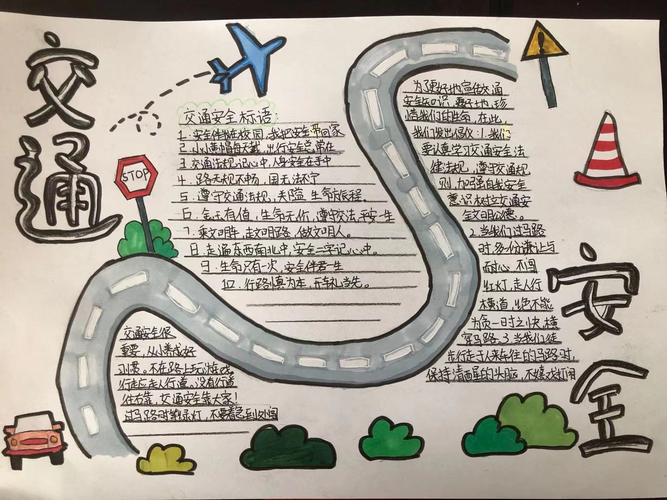 交通
安全
STOP
交通安全标语：
1、安全伴进校园，我把安全带回家
2、小小黄帽头天戴，出行安全常在
3、交通法规记心中，人生安全在手中
4、路无规不畅，国无法不宁
5、遵守交通法规，关 生命旅程。
6、金无有值，生命无价，遵守交法，平安一生
7、乘文明车，走文明路，做文明人。
8、走遍东西南北中，安全二字记心中。
9、生命只有一次，安全伴君一生
10、行路慎为本，开车礼当先。
为了更好地宣传交通
安全知识，更好地珍
惜我们的生命，在此，
我们发出倡仪：1.我们
要认真学习交通安全法
律法规，遵守交通规
则，加强自我安全
意识，树立交通安
全文明公德。
2.当我们过马路
时，多份谦让与
耐心，不闯
红灯，走人行
横道，绝不能
为负一时之快，横
穿马路。3.当我们徒
步行走于人来车往的马路时，
保持清醒的头脑，不嬉戏打闹
交通安全很
重要，从小养成好
习惯，不在路上玩游戏，
行走应走人行道，没有行道
往右靠，交通安全靠大家！
过马路时等绿灯，不要